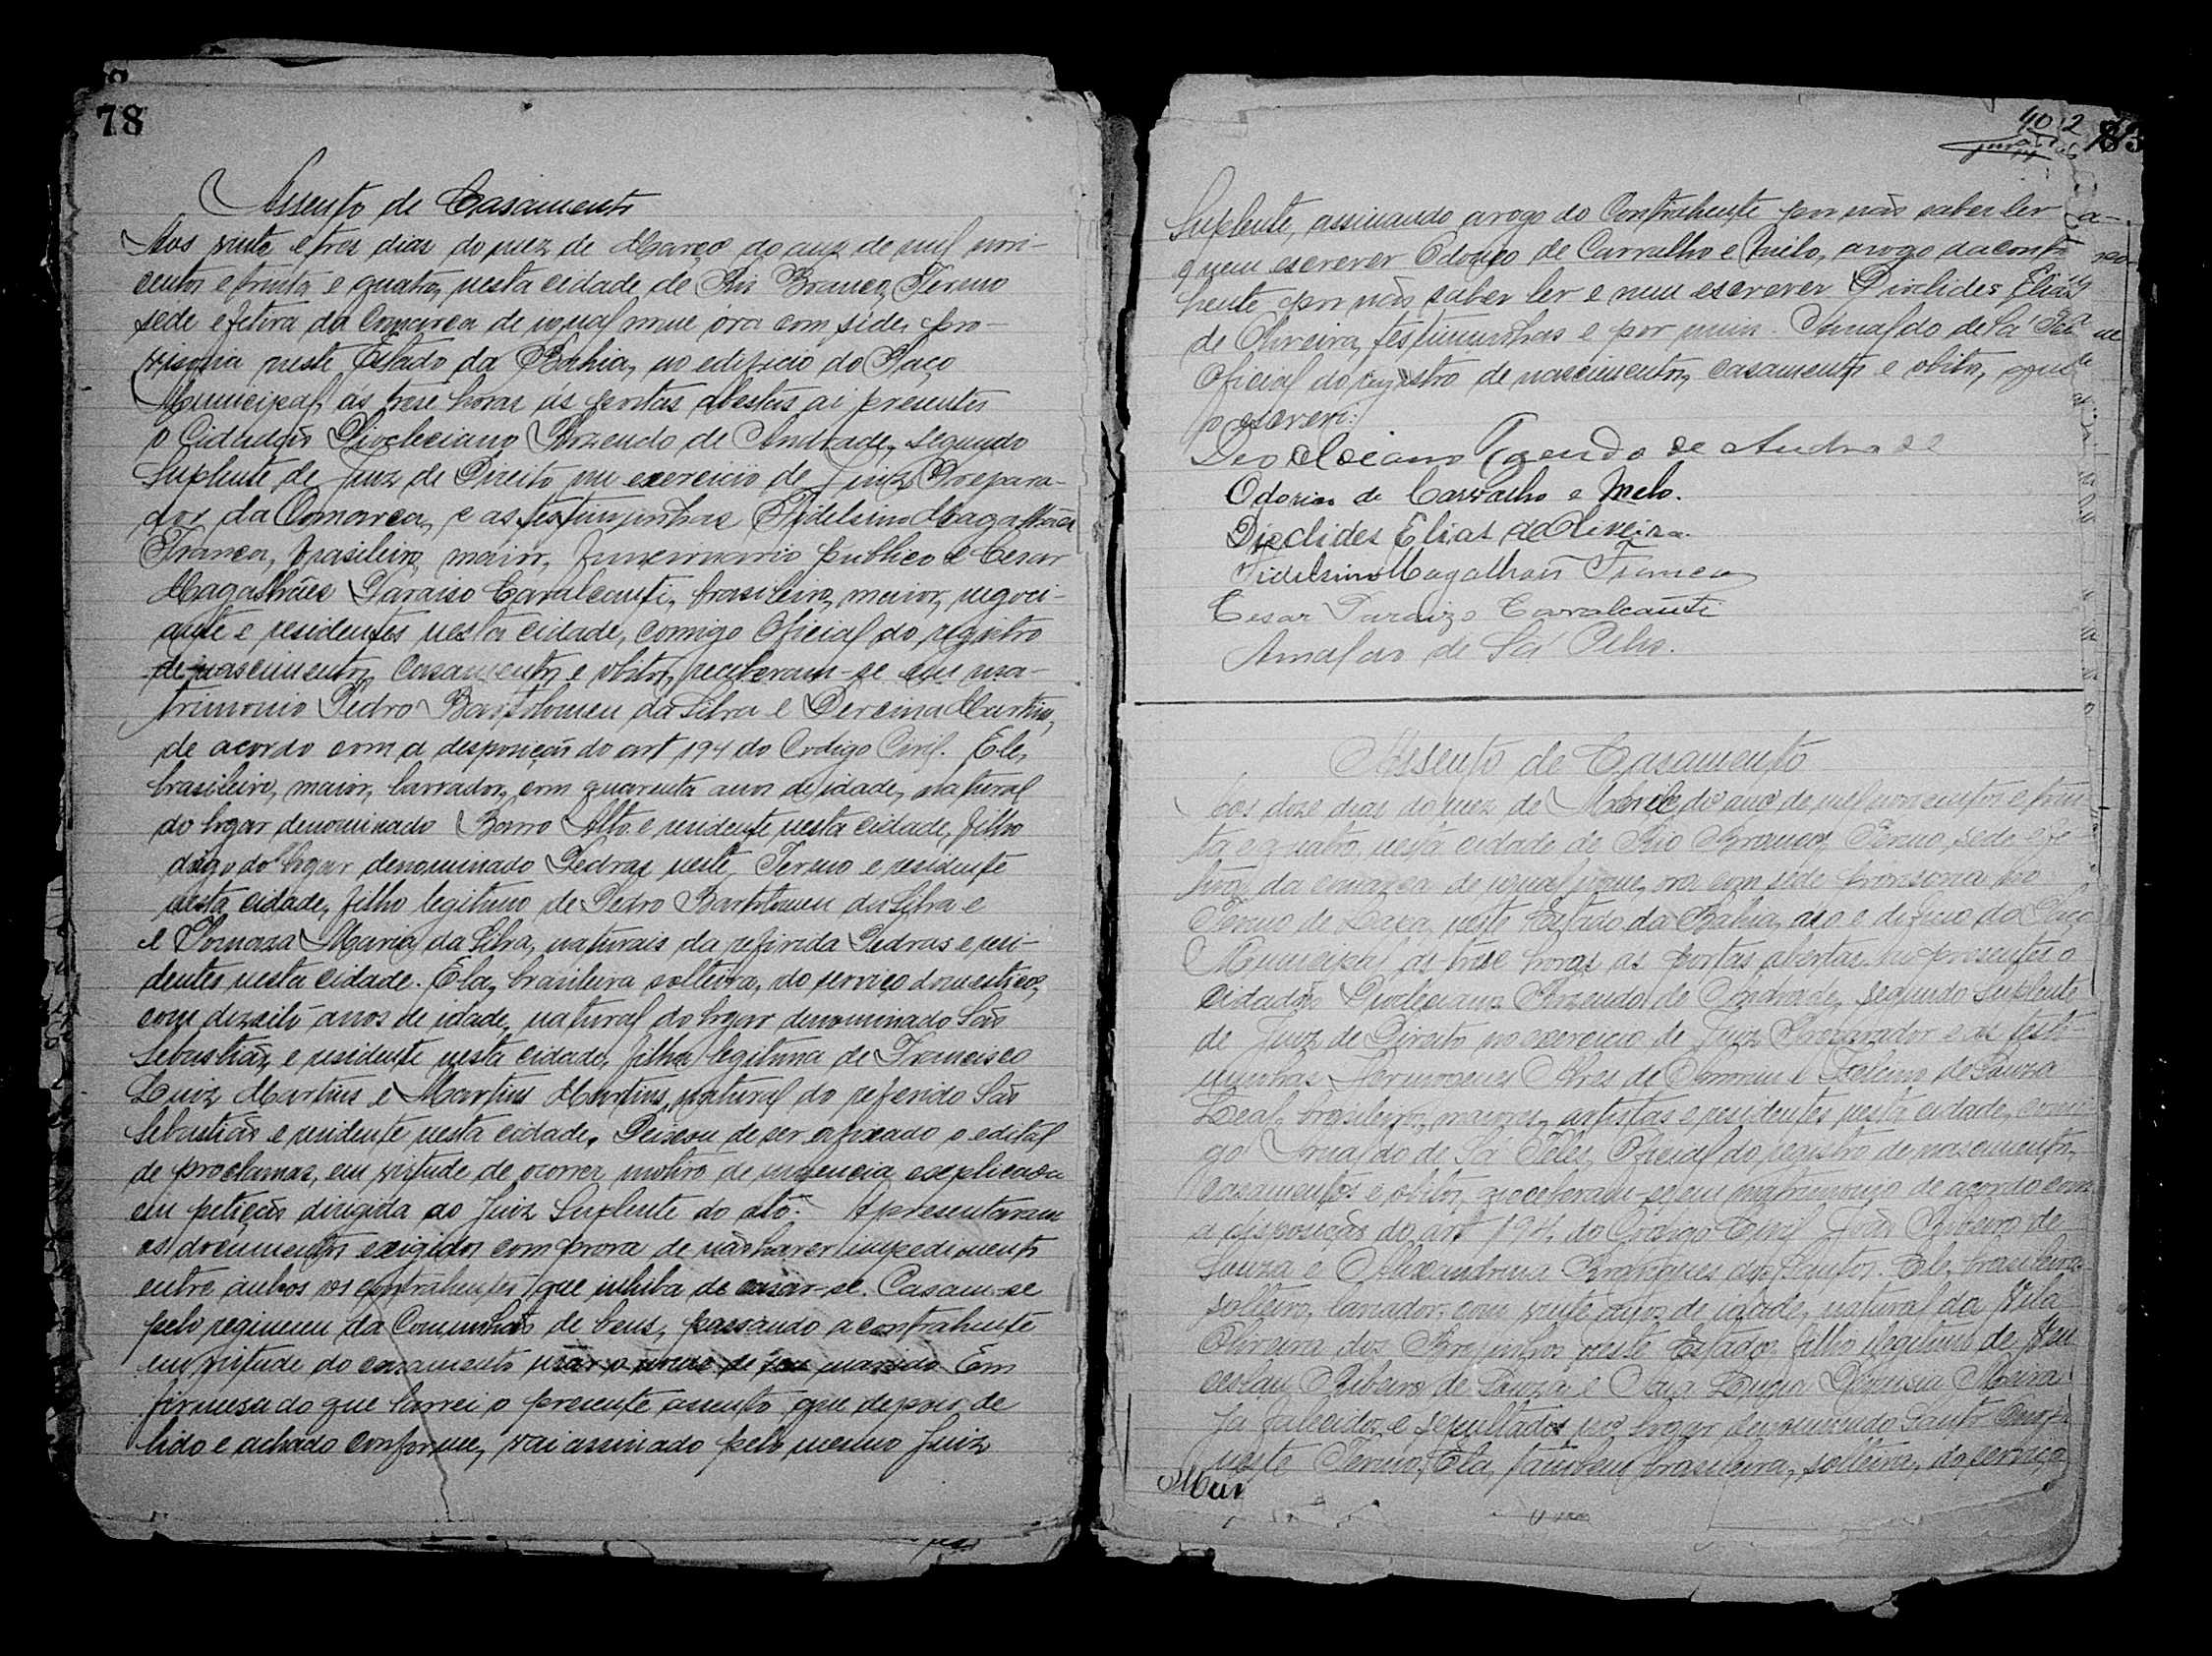 78
Assento de Casamento
Aos vinte e tres dias do mez de Março do ano de mil nove-
centos e trinta e quatro, nesta cidade de Rio Branco, Termo
sede efetiva da Comarca de igual nome ora com séde, pro-
visoria neste Estado da Bahia, no edificio do Paço
Municipal, ás trese horas ás portas abertas ai presentes
o Cidadão Diocleciano Rozendo de Andrade, segundo
Suplente de Juiz de Direito no exercicio de Juiz Prepara-
dor da Comarca, e as testimunhas Fidelsino Magalhães
Franca, brasileiro, maior, funcionario publico e Cesar
Magalhães Paraiso Cavalcanti, brasileiro, maior, negoci-
ante e residentes nesta cidade, comigo Oficial do registro
de nascimentos, casamentos e obitos, receberam-se em ma-
trimonio Pedro Bartolomeu da Silva e Dercina Martins,
de acordo com a disposição do art 194 do Codigo Civil. Ele,
brasileiro, maior, lavrador, com quarenta anos de idade, natural
do logar denominado Barro Alto e residente nesta cidade, filho
digo do logar denominado Pedras neste, Termo e residente
nesta cidade, filho legitimo de Pedro Bartolomeu da Silva e
e Tomaza Maria da Silva, naturais da referida Pedras e resi-
dentes nesta cidade. Ela, brasileira solteira, do serviço domestico,
com dezoito anos de idade, natural do logar denominado São
Sebastião, e residente nesta cidade, filha legitima de Francisco
Luiz Martins e Martins Martins, natural do referido São
Sebastião e residente nesta cidade. Deixou de ser afixado o edital
de proclamas, em virtude de ocorrer motivo de urgencia explicada
em petição dirigida ao Juiz Suplente do ato. Apresentaram
os documentos exigidos com prova de não haver impedimento
entre ambos os contrahentes que inhiba de casar-se. Casam-se
pelo regimem da Comunhão de bens, passando a contrahente
em virtude do casamento usar o nome de seu marido. Em
firmesa do que lavrei o presente assento que depois de
lido e achado conforme, vai assinado pelo mesmo Juiz
Suplente, assinando arogo do Contrahente por não saber ler
nem escrever Odorico de Carvalho e Melo, arogo da contra
hente por não saber ler e nem escrever Dioclides Elias
de Oliveira, testimunhas e por mim Arnaldo de Sá
Oficial do registro de nascimentos, casamentos e obitos, que
o escrevi:
Diocleciano Rozendo de Andrade
Odorico de Carvalho e Melo.
Dioclides Elias de Oliveira.
Fidelsino Magalhães Franca
Cesar Paraizo Cavalcanti
Arnaldo de Sá Teles.
Assento de Casamento
Aos doze dias do mez de Abril do ano de mil novecentos e trin
ta e quatro, nesta cidade de Rio Branco, Termo, sede efe-
tiva da comarca de igual nome, ora com sede provisoria no
Termo de neste Estado da Bahia, no edificio do Paço
Municipal ás trese horas as portas abertas presentes o
cidadão Diocleciano Rozendo de Andrade, segundo Suplente
de Juiz de Direito no exercicio de Juiz Preparador e as testi-
munhas Hermogenes Alves de Amorim e de Souza
Leal, brasileiros, maiores, artistas e residentes nesta cidade, comi
go Arnaldo de Sá Teles, Oficial do registro de nascimentos,
casamentos e obitos, receberam-se em matrimonio de acordo com
a disposição do art 194, do Codigo Civil João Ribeiro de
Souza e Alexandrina Rodrigues dos Santos. Ele, brasileiro
solteiro, lavrador, com vinte anos de idade, natural da Vila
Oliveira dos Brejinhos neste Estado, filho legitimo de Ven
ceslau Ribeiro de Souza e Moreira
já falecidos e sepultados no logar denominado Santo
neste Termo, Ela, tambem brasileira, solteira, do serviço